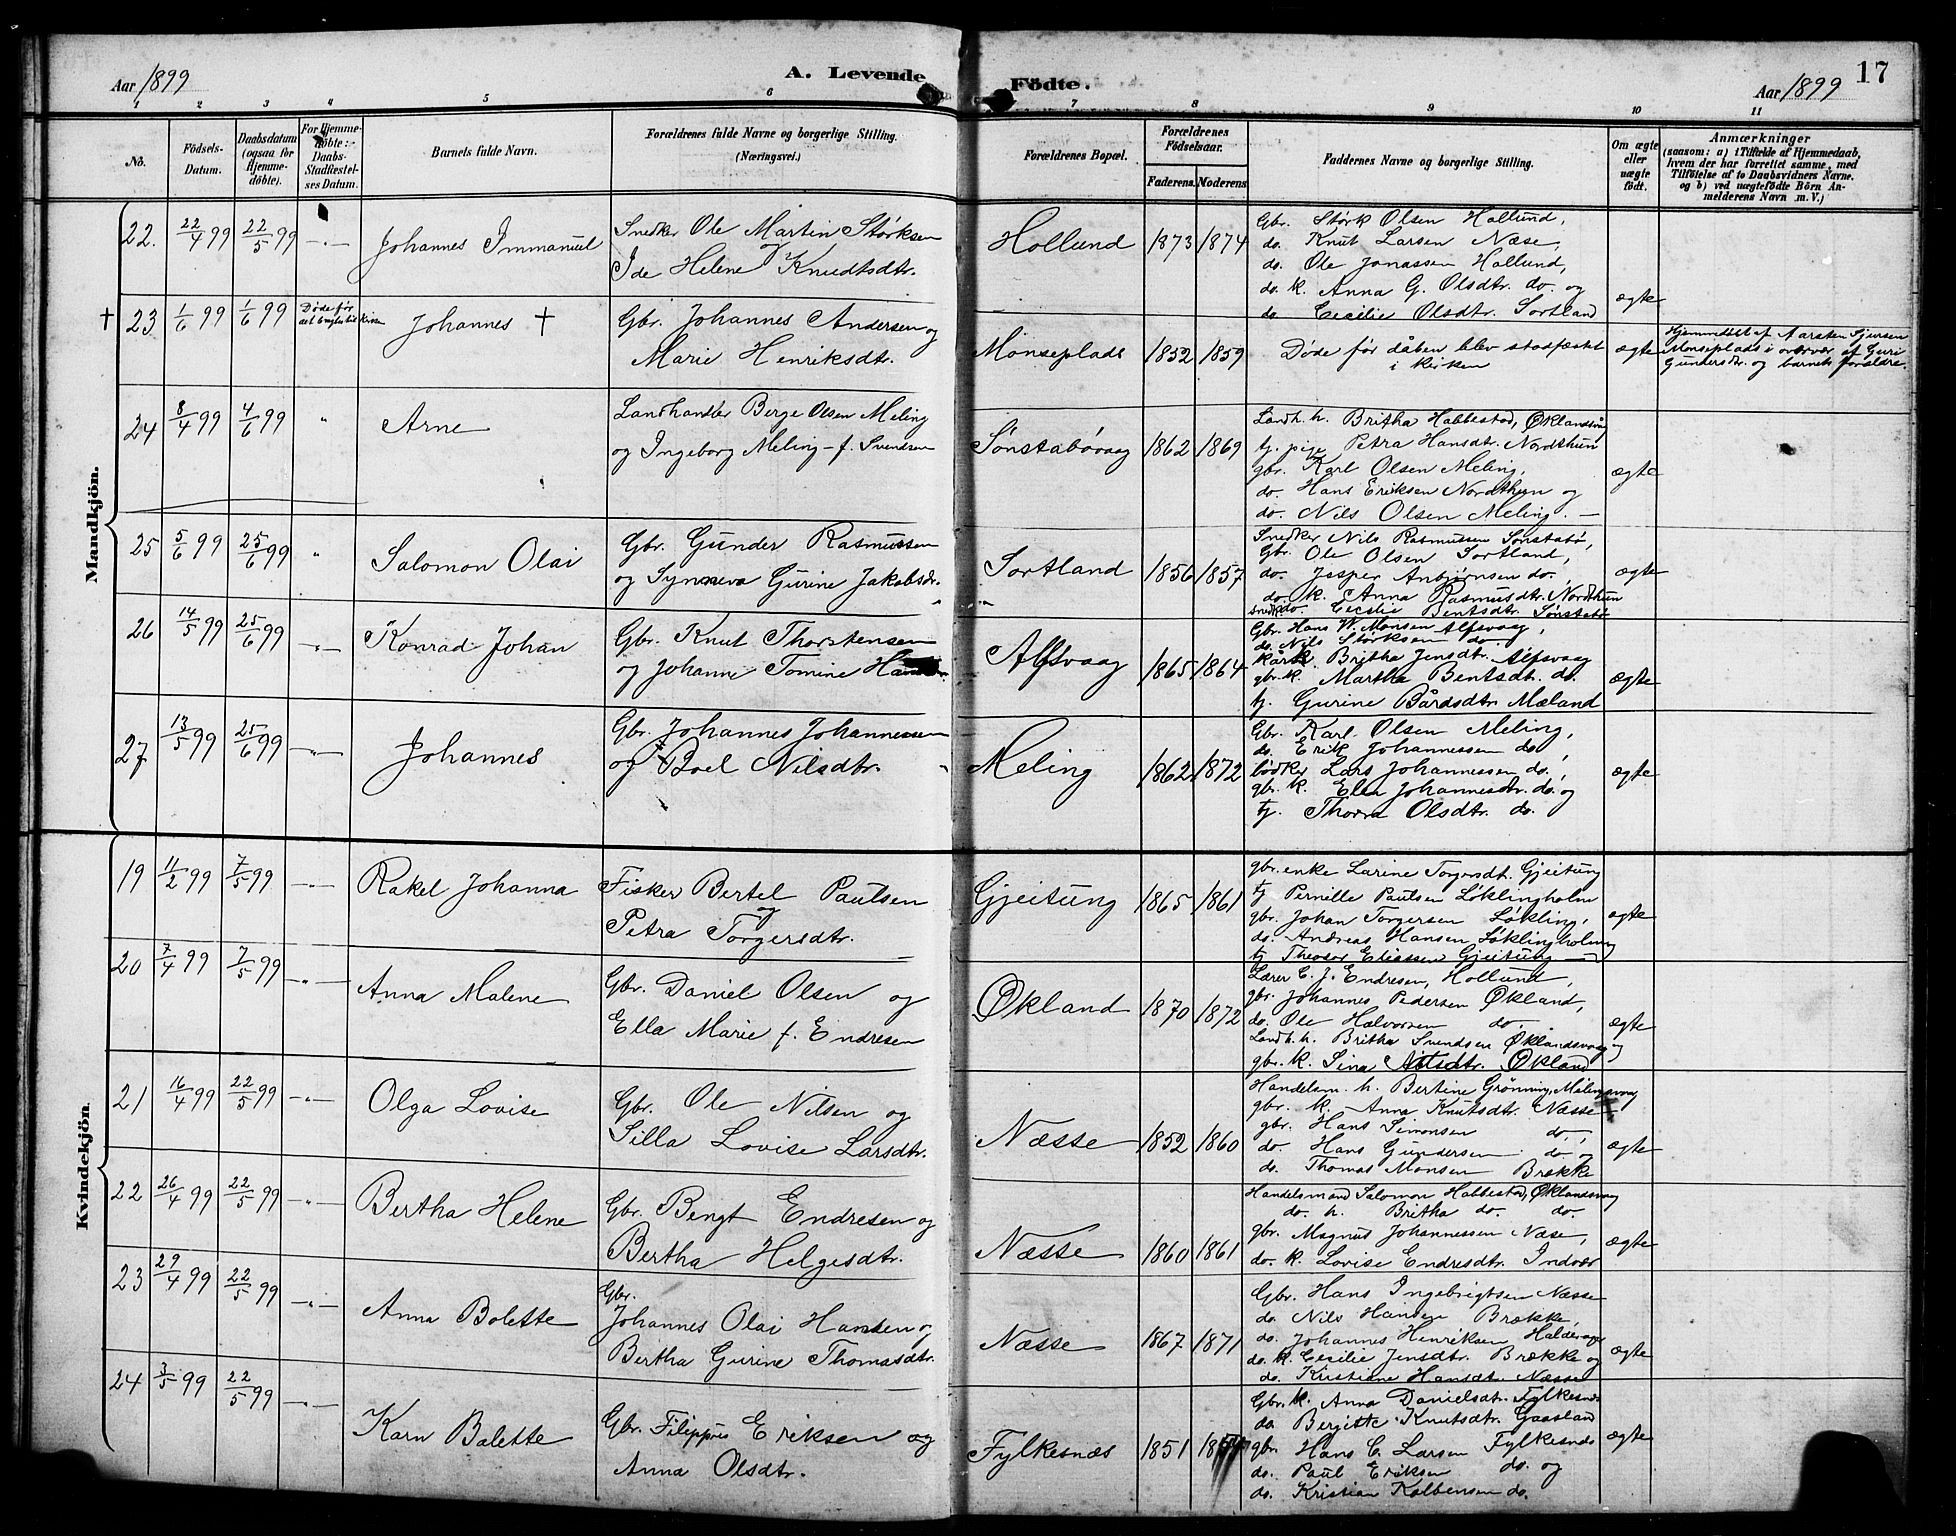 Aar 1899
A. Levende
Födte.
Aar 1899
17
1 2 3 4 5 6 7 8 9 10 11
No.
Födsels-
Datum.
Daabsdatum
(ogsaa for
Hjemme-
döbte).
For Hjemme-
döbte:
Daabs-
Stadfæstel-
ses Datum.
Barnets fulde Navn.
Forældrenes fulde Navne og borgerlige Stilling.
(Næringsvei.)
Forældrenes Bopæl.
Forældrenes
Födselsaar.
Faderens.
Moderens
Faddernes Navne og borgerlige Stilling.
Om ægte
eller
uægte
födt.
Anmærkninger
(saasom: a) i Tilfælde af Hjemmedaab,
hvem der har forrettet samme, med
Tilföielse af to Daabsvidners Navne.
og b) ved uægtefödte Börn An-
melderens Navn m. V.)
Mandkjön.
22. 22/4 99 22/5 99 -„- Johannes Immanuel
Snedker Ole Martin Størksen
Ide Helene Knudtsdtr.
Hollund 1873 1874
Gbr. Størk Olsen Hollund,
do. Knut Larsen Næse,
do. Ole Jonassen Hollund,
do. k. Anna G. Olsdtr. do. og
do Cecilie Olsdtr. Sortland
ægte
† 23 1/6 99 1/6 99 Døde før
Johannes †
Gbr. Johannes Andersen og
Marie Henriksdtr.
Monseplads 1852 1859
Døde før dåben blev stadfæstet
i kirken
ægte
Hjemmedøbt af Karsten Sjursen
Monseplads i overvær af Guri
Gundersdtr. og barnets forældre.
24 8/4 99 4/6 99 „ Arne
Landhandler Berge Olsen Meling
og Ingeborg Meling - f. Svendsen
Sønstabøvaag 1862 1869
Landh. h. Britha Habbestad, Øklandsvåg
tj. pige Petra Hansdtr. Nordthun
gbr. Karl Olsen Meling,
do. Hans Eriksen Nordthun og
do. Nils Olsen Meling. -
ægte
25 5/6 99 25/6 99 „ Salomon Olai
Gbr. Gunder Rasmussen
og Synneva Gurine Jakobsdr.
Sortland 1856 1857
Snedker Nils Rasmussen Sønstabø,
Gbr. Ole Olsen Sortland,
do. Jesper Anbjørnsen do.,
do. k. Anna Rasmusdtr. Nordthun
snedk. do. Cecilie Bentsdtr. Sønstabø
ægte
26 14/5 99 25/6 99 -„- Konrad Johan
Gbr. Knut Thorstensen
og Johanne Tomine
Alfsvaag 1865 1864
Gbr. Hans W. Monsen Alfsvaag,
do. Nils Størksen do
Britha Jensdtr. Alfsvaag
gbr. k. Martha Bentsdtr. do.
tj. Gurine Bårdsdtr. Mæland
ægte
27 13/5 99 25/6 99 -„- Johannes
Gbr. Johannes Johannessen
og Boel Nilsdtr.
Meling 1862 1872
Gbr. Karl Olsen Meling,
do. Erik Johannessen do.,
bødker Lars Johannessen do.,
gbr. k. Elen Johannesdtr. do. og
tj. Thorra Olsdtr. do.
ægte
Kvindekjön.
19 11/2 99 7/5 99 -„- Rakel Johanna
Fisker Bertel Paulsen
og
Petra Torgersdtr.
Gjeitung 1865 1861
gbr. enke Larine Torgersdt. Gjeitung
tj Pernille Paulsen Løklingholm
gbr. Johan Torgersen Løkling,
do. Andreas Hansen Løklingholmen
tj Theodor Eliassen Gjeitung
ægte
20 7/4 99 7/5 99 -„- Anna Malene
Gbr. Daniel Olsen og
Ella Marie f. Endresen
Økland 1870 1872
Lærer C. J. Endresen, Hollund,
gbr. Johannes Pedersen Økland,
do. Ole Halvorsen do.
Landh. h. Britha Svendsen Øklandsvaag
gbr. k. Sina Økland
ægte
21 16/4 99 22/5 99 -„- Olga Lovise
Gbr. Ole Nilsen og
Silla Lovise Larsdtr.
Næsse 1852 1860
Handelsm. h. Bertine Grønning, Melingsvaag
gbr. k. Anna Knutsdtr. Næsse
gbr. Hans Simonsen do.,
do. Hans Gundersen do. og
do. Thomas Monsen Brække
ægte
22 26/4 99 22/5 99 -„- Bertha Helene
Gbr. Bengt Endresen og
Bertha Helgesdtr.
Næsse 1860 1861
Handelsmand Salomon Habbestad, Øklandsvaag
do. h. Britha do. do.
gbr. Magnus Johannessen Næse,
do. k. Lovise Endresdtr. Indvær
ægte
23 29/4 99 22/5 99 -„- Anna Bolette
Gbr.
Johannes Olai Hansen og
Bertha Gurine Thomasdtr.
Næsse 1867 1871
Gbr. Hans Ingebrigtsen Næsse
do. Nils Hansen Brække,
do. Johannes Henriksen
do. k. Cecilie Jensdtr. Brække og
do. Kristiane Hansdt. Næsse
ægte
24 3/5 99 22/5 99 -„- Karn Bolette
Gbr. Filippus Eriksen og
Anna Olsdtr.
Fylkesnæs 1851
Gbr. k. Anna Danielsdtr. Fylkesnæs
do. Bergitte Knutsdtr. Gaasland
gbr. Hans C. Larsen Fylkesnæs
do. Paul Eriksen do. og
do. Kristian Kolbensen do.
ægte